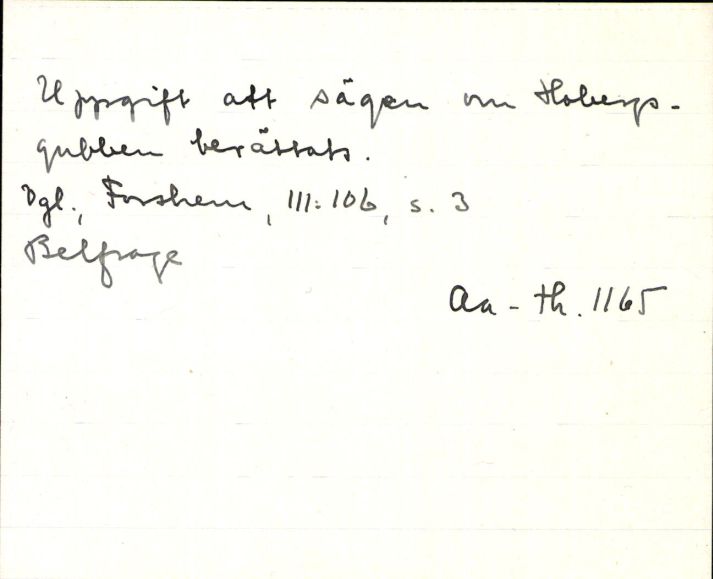 Uppgift att sägen om Hobergs-
gubben berättats.
Vgl., Forshem, III:106, s. 3
Belfrage
Aa - Th. 1165